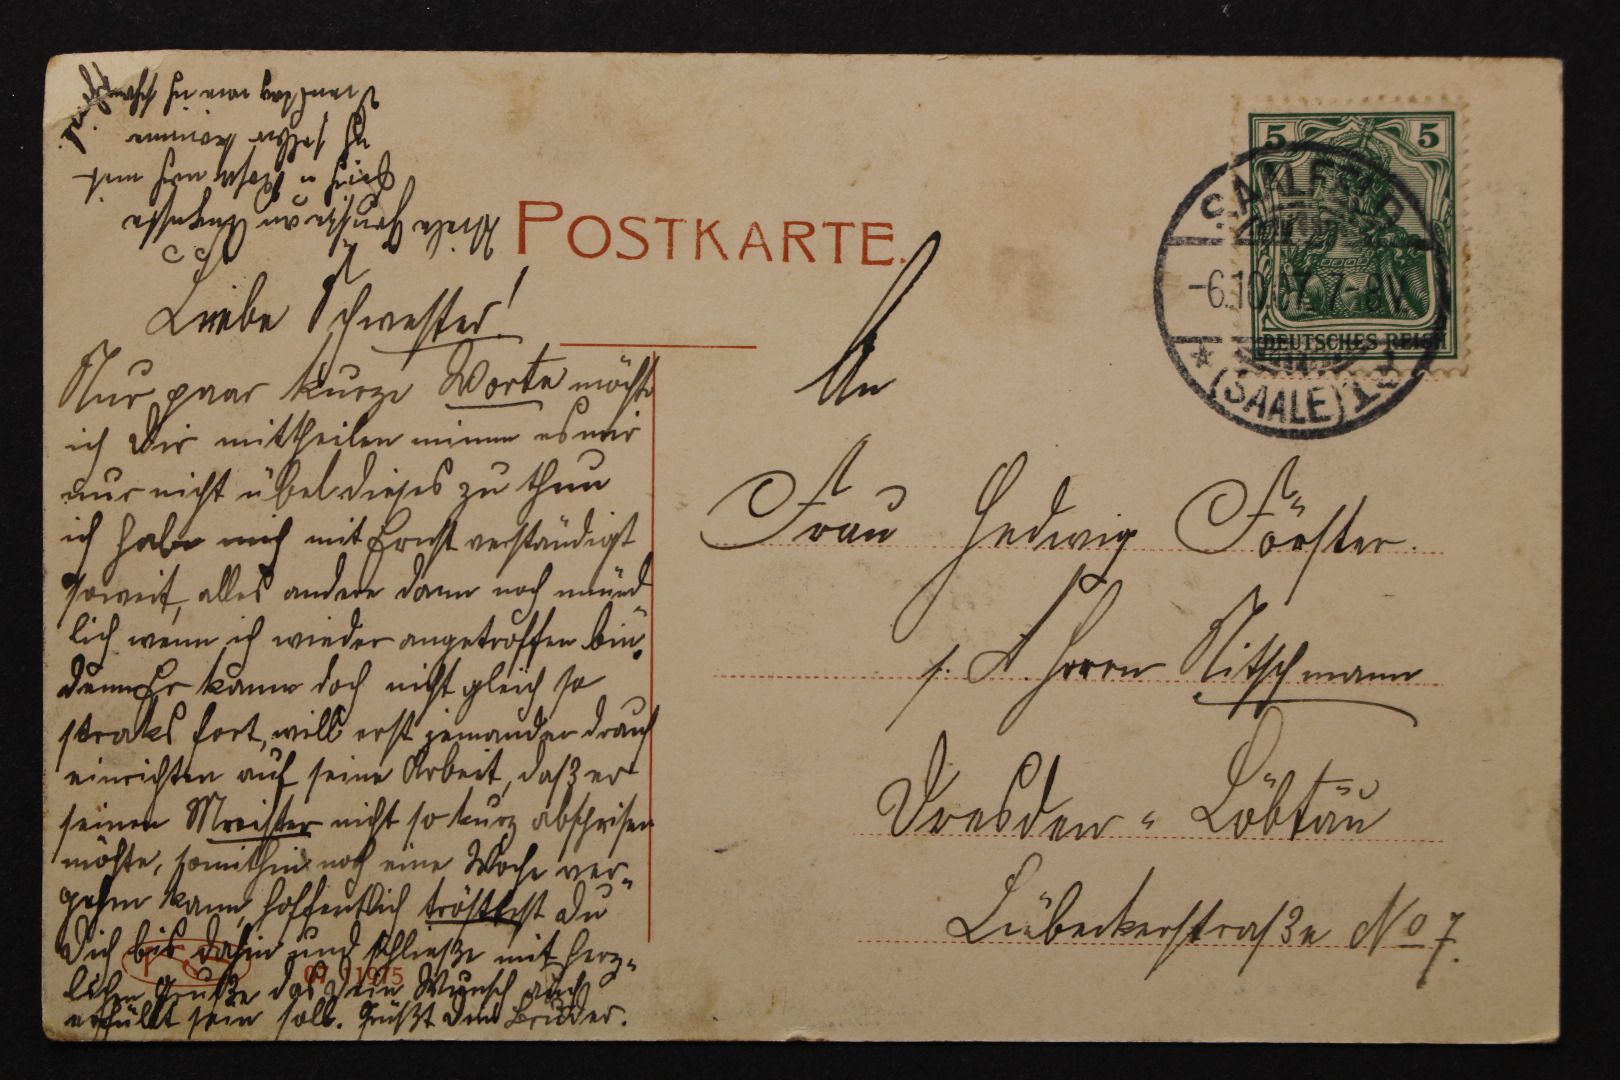 POSTKARTE.
Liebe Schwester!
Nur paar kurze Worte möchte
ich Dir mittheilen nimm es mir
nur nicht übel dieses zu thun
ich habe mich mit Ernst verständigt
soweit, alles andere dann noch münd
lich wenn ich wieder angetroffen bin,
denn Er kann doch nicht gleich so
straks fort, will erst jemanden drauf
einrichten auf seine Arbeit, daß er
seinen Meister nicht so kurz
möchte, somithin noch eine Woche ver-
gehen kann, hoffentlich tröstest Du
Dich bis dahin und schließe mit herz-
lichen Gruße das Dein Wunsch auch
erfüllt sein soll. Grüßt Dein Bruder.
Viele Grüße an
An
Frau Hedwig Förster.
Herrn Nitschmann
Dresden - Löbtau
Lübeckerstraße No 7.
5 5
DEUTSCHES REICH
SAALFELD
-6.10.07. 7-8 V.
* (SAALE) 1 *
07 11975